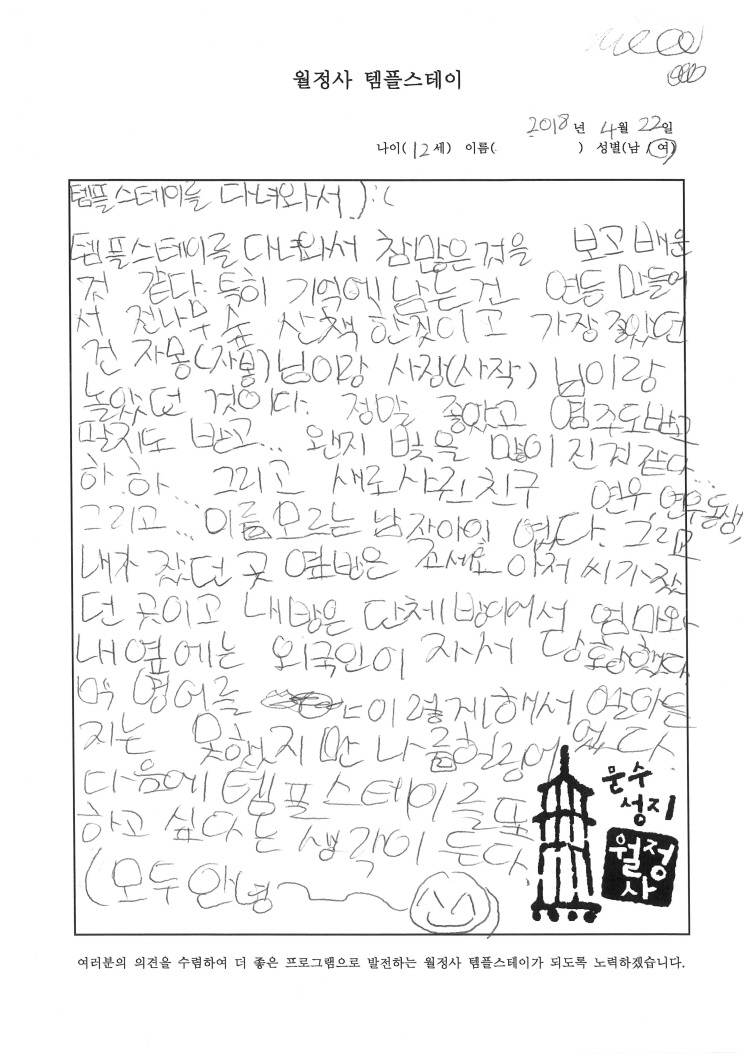 월정사 템플스테이
2018년 4월 22일
나이(12세) 이름( ) 성별(남/여)
템플스테이를 다녀와서 ) :(
템플스테이를 다녀와서 참많은것을 보고 배운
것 같다. 특히 기억에 남는건 연등 만들어
서 전나무숲 산책 한것이고 가장 좋았던
건 자몽(자봉)님이랑 사장(사작) 님이랑
놀았던 것이다. 정말 좋았고 염주도받고
팔찌도 받고... 왠지 빚을 많이 진것 같다...
하.하... 그리고 새로사귄친구 연우,연우동생,
그리고... 이름모르는 남자아이 였다. 그리고
내가 잤던 곳 옆방은 조세호 아저씨가 잤
던 곳이고 내방은 단체방이어서 엄마와
내옆에는 외국인이 자서 당황했다
영어를 이렇게해서 알아듣
지는 못했지만 나름 였다.
다음에 템플스테이를또
하고 싶다는 생각이 든다.
(모두안녕~
문수
성지
월정
사
여러분의 의견을 수렴하여 더 좋은 프로그램으로 발전하는 월정사 템플스테이가 되도록 노력하겠습니다.